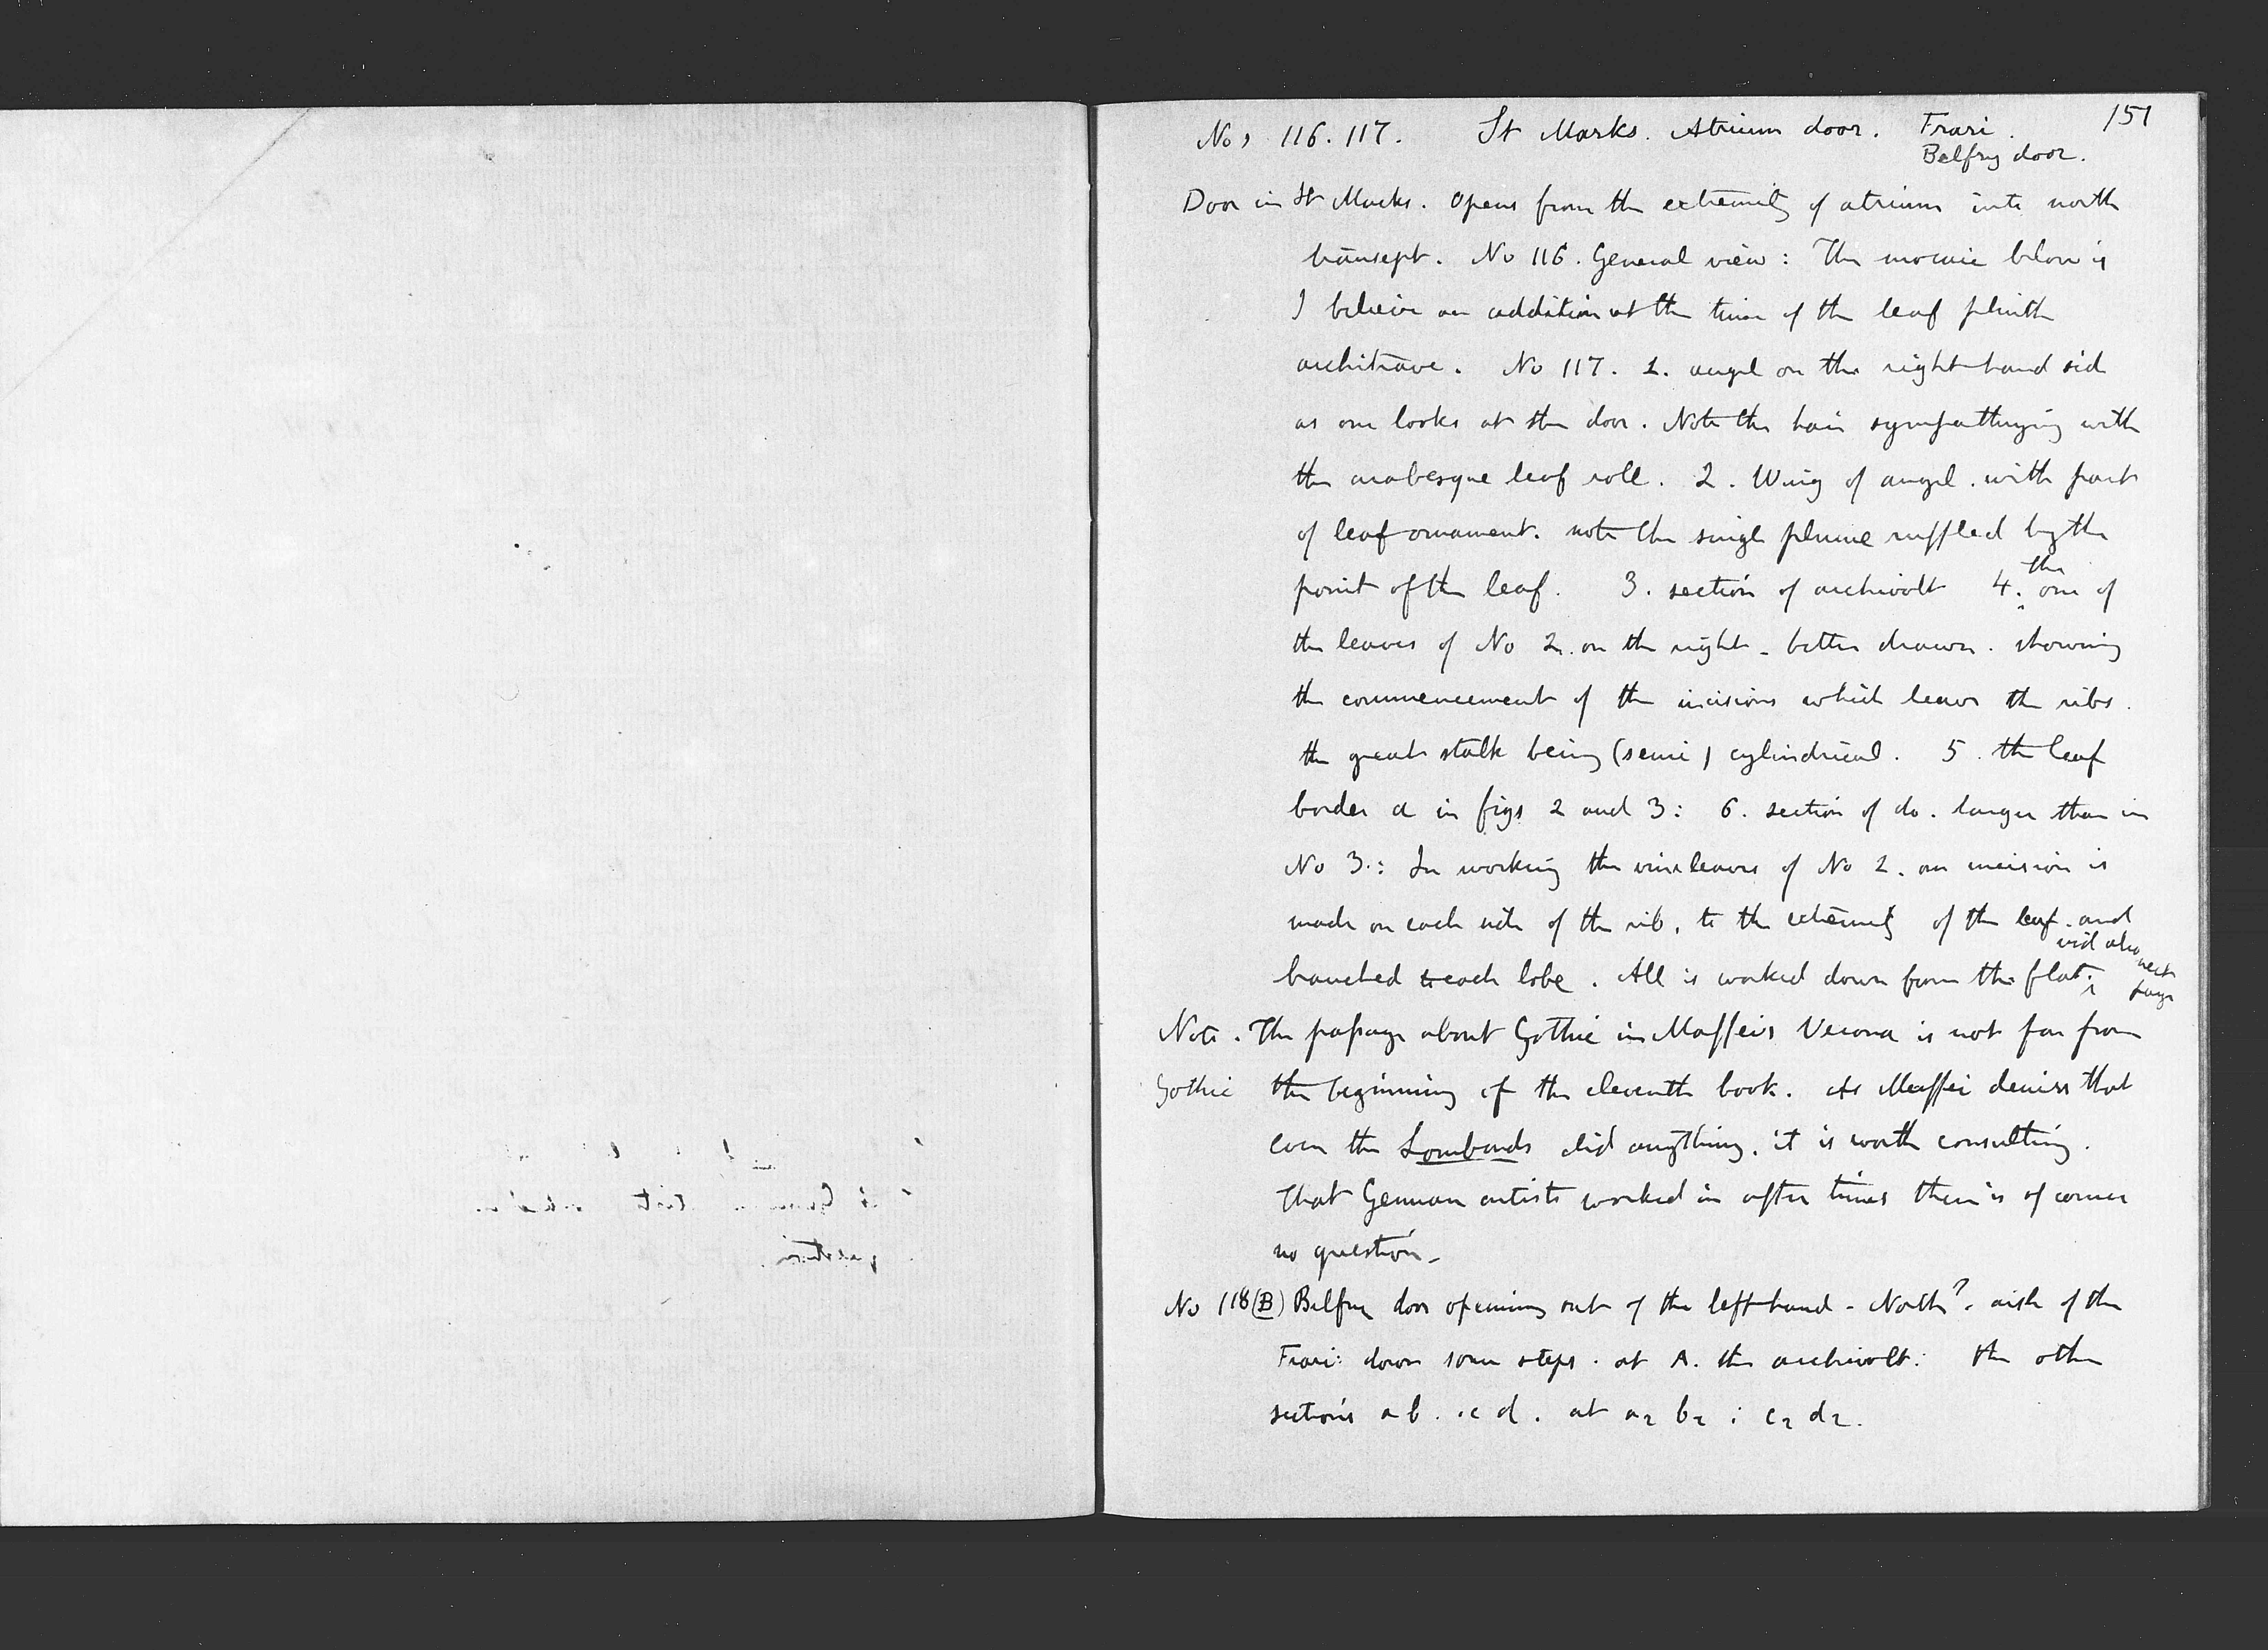 151
Nos 116. 117. St Marks. Atrium door. Frari.
Belfry door.
Door in St Marks. Opens from the extremity of atrium into north
transept. No 116. General view: The mosaic below is
I believe an addition at the time of the leaf plinth
architrave. No 117. 1. angel on the right hand side
as one looks at the door. Note the hair sympathizing with
the arabesque leaf roll. 2. Wing of angel. with part
of leaf ornament. note the single plume ruffled by the
point of the leaf. 3. section of archivolt 4. the one of
the leaves of No 2. on the right - better drawn. showing
the commencement of the incisions which leave the ribs.
the great stalk being (semi) cylindrical. 5. the leaf
border a in figs 2 and 3: 6. section of do. larger than in
No 3.: In working the vine leaves of No 2. an incision is
made on each side of the rib, to the extremity of the leaf. and
branched to each lobe. All is worked down from the flat. vid also next page
Note. The passage about Gothic in Maffeis Verona is not far from
Gothic the beginning of the eleventh book. As Maffei denies that
even the Lombards did anything, it is worth consulting.
That German artists worked in after times there is of course
no question -
No 118 (B) Belfry door opening out of the left hand - North? - aisle of the
Frari: down some steps. at A. the archivolt: the other
sections a b. c d. at a2 b2 : c2 d2.